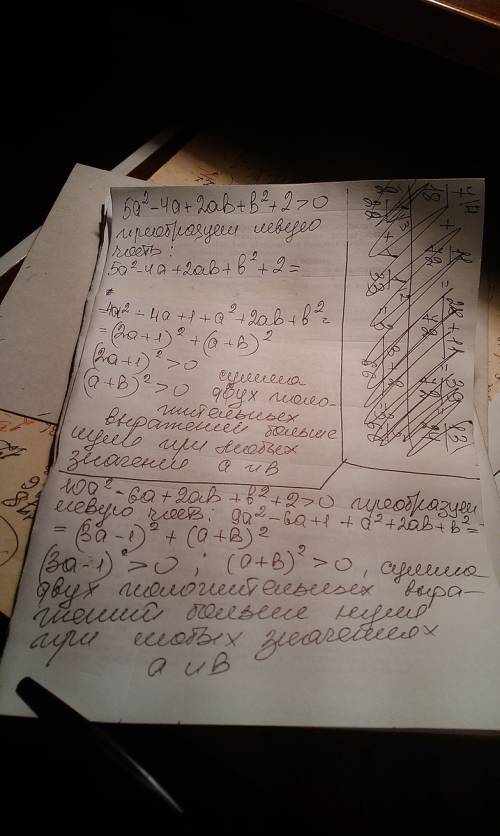 5a²-4a+2ab+b²+2>0
преобразуем левую
часть:
5a²-4a+2ab+b²+2=
=4a²-4a+1+a²+2ab+b²=
=(2a+1)²+(a+b)²
(2a+1)²>0
(a+b)²>0 сумма
двух поло-
жительных
выражений больше
нуля при любых
значения a и b
10a²-6a+2ab+b²+2>0 преобразуем
левую часть: 9a²-6a+1+a²+2ab+b²=
=(3a-1)²+(a+b)²
(3a-1)²>0; (a+b)²>0, сумма
двух положительных выра-
жений больше нуля
при любых значениях
a и b